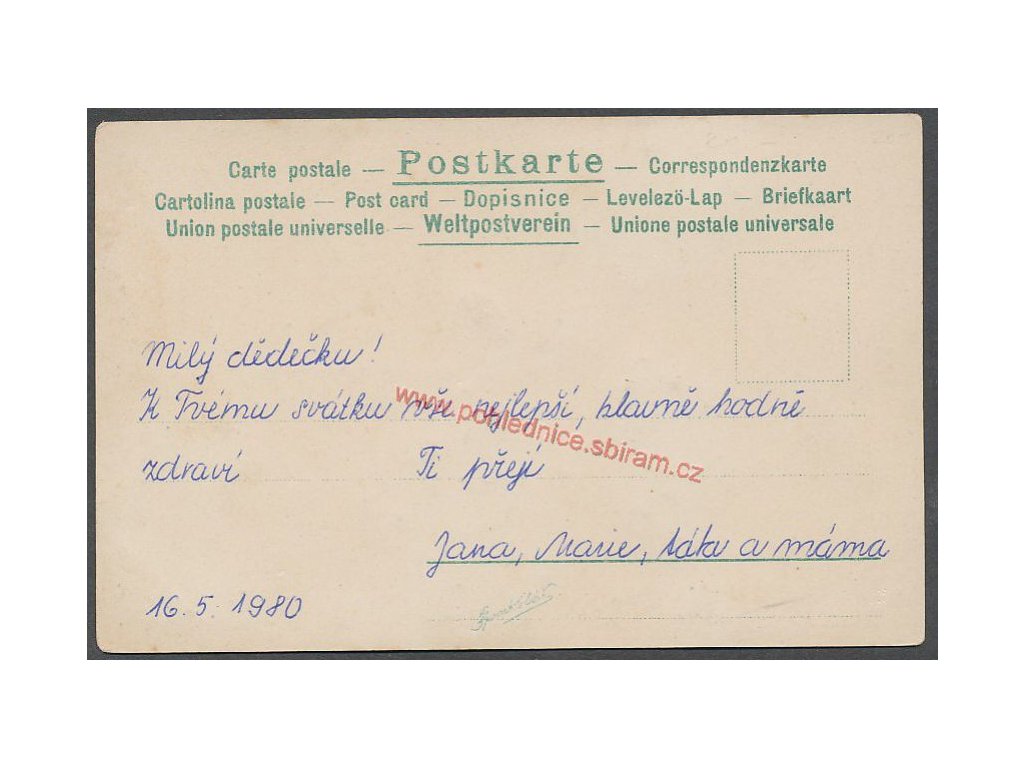 Carte postale — Postkarte — Correspondenzkarte
Cartolina postale — Post card — Dopisnice — Levelezö-Lap — Briefkaart
Union postale universelle — Weltpostverein — Unione postale universale
Milý dědečku!
K Tvému svátku vše nejlepší, hlavně hodně
www.pohlednice.sbiram.cz
zdraví Ti přejí
Jana, Marie, táta a máma
16. 5. 1980